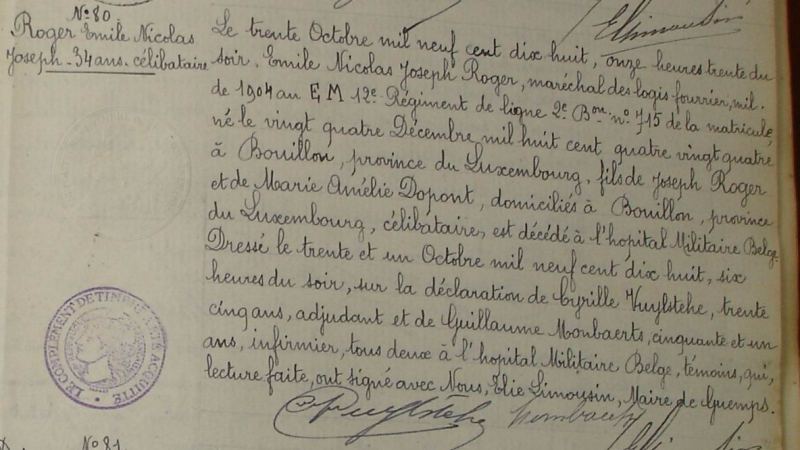 N° 80
Roger Emile Nicolas
Joseph - 34 ans. célibataire
Elimousin
Le trente Octobre mil neuf cent dix huit, onze heures trente du
soir, Emile Nicolas Joseph Roger, maréchal des logis fourrier, mil.
de 1904 au E M 12e Régiment de ligne 2e Bon n° 715 de la matricule,
né le vingt quatre Décembre mil huit cent quatre vingt quatre
à Bouillon, province du Luxembourg, fils de Joseph Roger
et de Marie Amélie Dopont, domiciliés à Bouillon, province
du Luxembourg, célibataire, est décédé à l'hopital Militaire Belge
Dressé le trente et un Octobre mil neuf cent dix huit, six
heures du soir, sur la déclaration de Cyrille Vuylstehe, trente
cinq ans, adjudant et de Guillaume Monbaerts, cinquante et un
ans, infirmier, tous deux à l'hopital Militaire Belge, témoins, qui,
lecture faite, ont signé avec Nous, Elie Limousin, Maire de Guemps.
LE COMPLEMENT DE TIMBRE A ETE ACQUITTE
N° 81